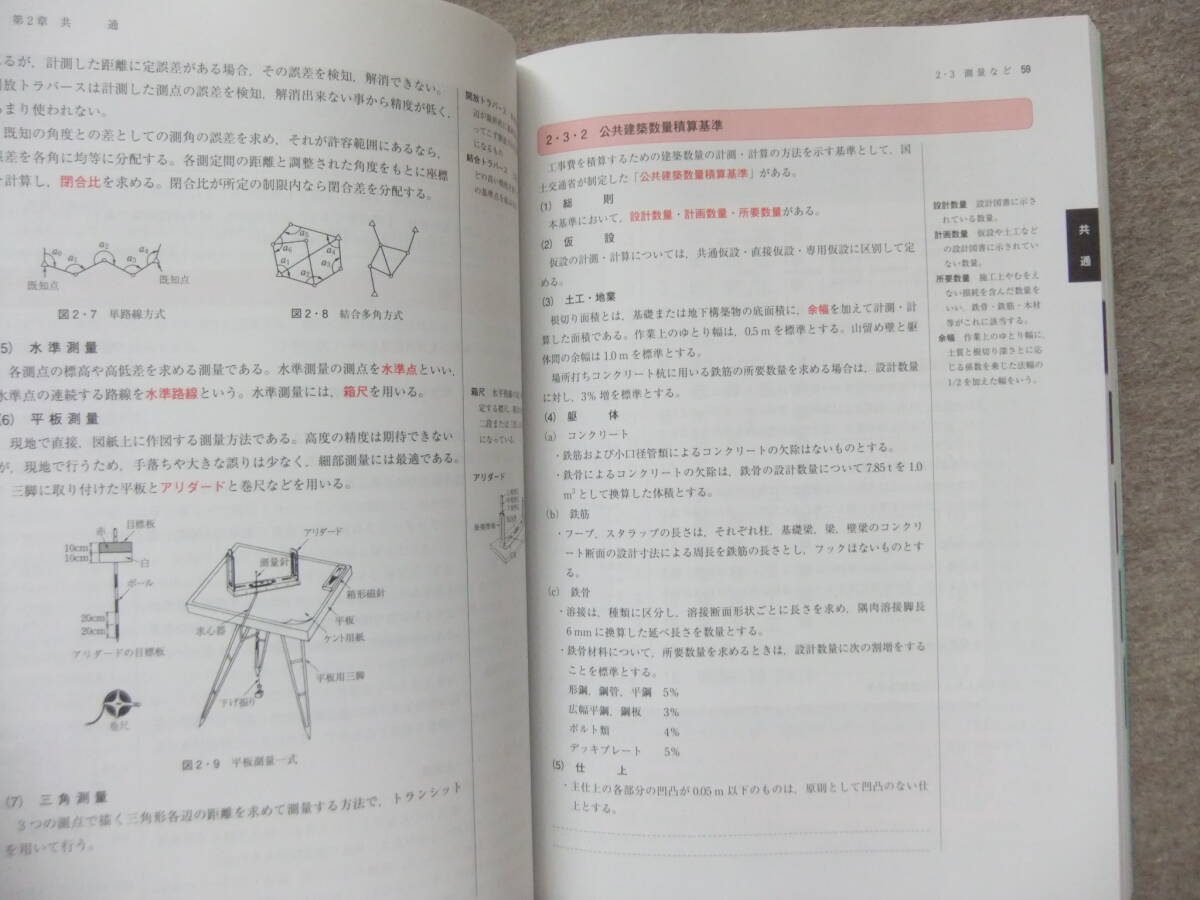 第2章 共 通
るが，計測した距離に定誤差がある場合，その誤差を検知，解消できない。
開放トラバースは計測した測点の誤差を検知，解消出来ない事から精度が低く，
まり使われない。
既知の角度との差としての測角の誤差を求め，それが許容範囲にあるなら，
誤差を各角に均等に分配する。各測定間の距離と調整された角度をもとに座標
計算し，閉合比を求める。閉合比が所定の制限内なら閉合差を分配する。
既知点
既知点
図2・7 単路線方式
図2・8 結合多角方式
5) 水準測量
各測点の標高や高低差を求める測量である。水準測量の測点を水準点といい，
水準点の連続する路線を水準路線という。水準測量には，箱尺を用いる。
(6) 平板測量
現地で直接，図紙上に作図する測量方法である。高度の精度は期待できない
が，現地で行うため，手落ちや大きな誤りは少なく，細部測量には最適である。
三脚に取り付けた平板とアリダードと巻尺などを用いる。
赤
目標板
10cm
10cm
白
ポール
20cm
20cm
アリダードの目標板
巻尺
アリダード
測量針
箱形磁針
平板
ケント用紙
求心器
平板用三脚
下げ振り
図2・9 平板測量一式
(7) 三角測量
3つの測点で描く三角形各辺の距離を求めて測量する方法で，トランシット
を用いて行う。
開放トラバース
結合トラバース
の基準点を
箱尺
アリダード
2・3 測量など 59
2・3・2 公共建築数量積算基準
工事費を積算するための建築数量の計測・計算の方法を示す基準として，国
土交通省が制定した「公共建築数量積算基準」がある。
(1) 総 則
本基準において，設計数量・計画数量・所要数量がある。
(2) 仮 設
仮設の計測・計算については，共通仮設・直接仮設・専用仮設に区別して定
める。
(3) 土工・地業
根切り面積とは，基礎または地下構築物の底面積に，余幅を加えて計測・計
算した面積である。作業上のゆとり幅は，0.5 m を標準とする。山留め壁と躯
体間の余幅は 1.0 m を標準とする。
場所打ちコンクリート杭に用いる鉄筋の所要数量を求める場合は，設計数量
に対し，3% 増を標準とする。
(4) 躯 体
(a) コンクリート
・鉄筋および小口径管類によるコンクリートの欠除はないものとする。
・鉄骨によるコンクリートの欠除は，鉄骨の設計数量について 7.85 t を 1.0
m³ として換算した体積とする。
(b) 鉄筋
・フープ，スタラップの長さは，それぞれ柱，基礎梁，梁，壁梁のコンクリ
ート断面の設計寸法による周長を鉄筋の長さとし，フックはないものとす
る。
(c) 鉄骨
・溶接は，種類に区分し，溶接断面形状ごとに長さを求め，隅肉溶接脚長
6 mm に換算した延べ長さを数量とする。
・鉄骨材料について，所要数量を求めるときは，設計数量に次の割増をする
ことを標準とする。
形鋼，鋼管，平鋼 5%
広幅平鋼，鋼板 3%
ボルト類 4%
デッキプレート 5%
(5) 仕 上
・主仕上の各部分の凹凸が 0.05 m 以下のものは，原則として凹凸のない仕
上とする。
設計数量 設計図書に示さ
れている数量。
計画数量 仮設や土工など
の設計図書に示されてい
ない数量。
所要数量 施工上やむをえ
ない損耗を含んだ数量を
いい，鉄骨・鉄筋・木材
等がこれに該当する。
余幅 作業上のゆとり幅に，
土質と根切り深さとに応
じる係数を乗じた法幅の
1/2 を加えた幅をいう。
共
通